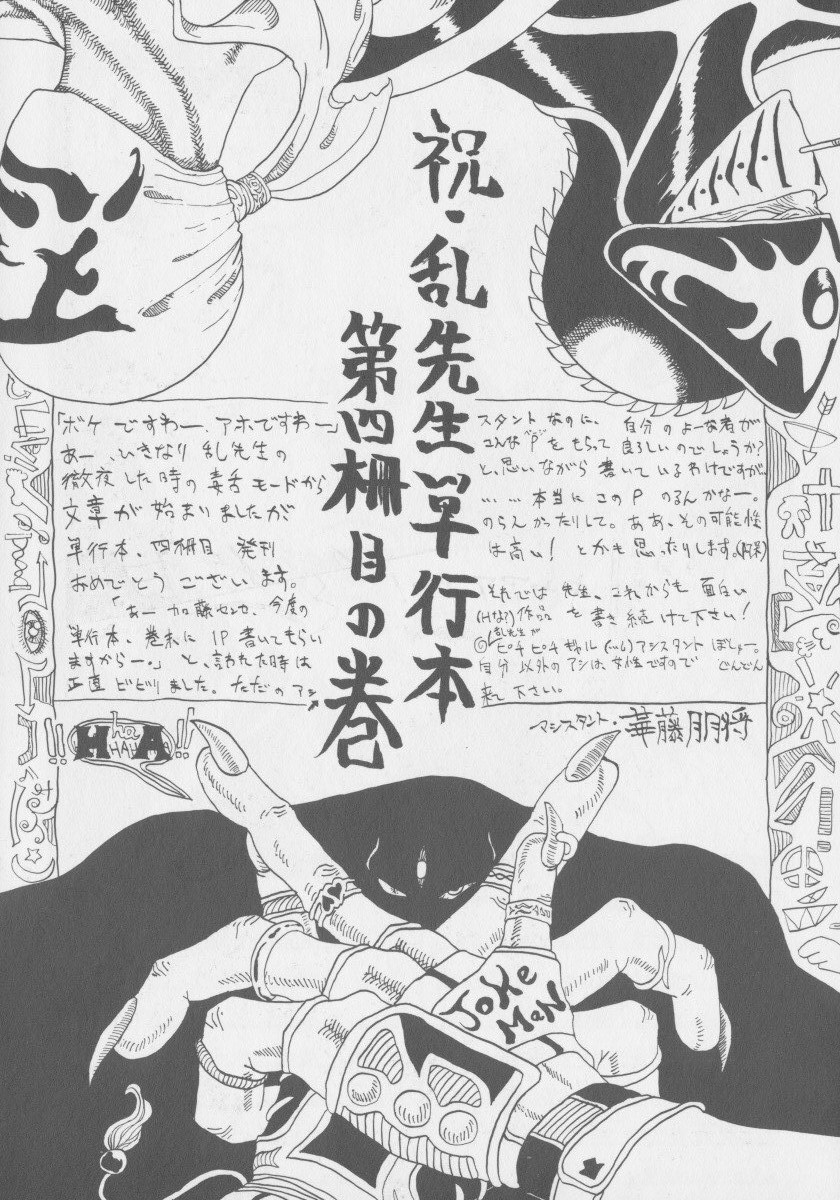 祝・乱先生単行本
第四柵目の巻
「ボケですわー、アホですわー」
あー、いきなり乱先生の
徹夜した時の毒舌モードから
文章が始まりましたが
単行本、四冊目 発刊
おめでとうございます。
「あー加藤センセ、今度の
単行本、巻末に1P書いてもらい
ますからー。」と、言われた時は
正直ビビりました。ただのアシ
スタントなのに、自分のよーな者が
こんな"P"をもらって良ろしいのでしょうか?
と、思いながら書いているわけですが、
……本当にこのP のるんかなー。
のらんかったりして。ああ、その可能性
は高い! とかも思ったりします。
それでは先生、これからも面白い
(Hな?)作品を書き続けて下さい!
乱先生が
◎ピチピチギャル アシスタント ぼしゅー。
自分以外のアシは、女性ですので じゃんじゃん
来て下さい。
マシスタント・華藤朋将
!! Ha HAHAHA H A !!
JoKe
MaN